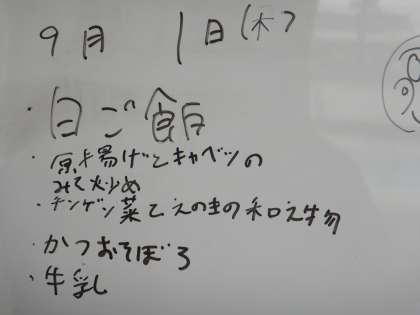 9月 1日(木)
・白ご飯
・厚揚げとキャベツの
みそ炒め
・チンゲン菜とえのきの和え物
・かつおそぼろ
・牛乳